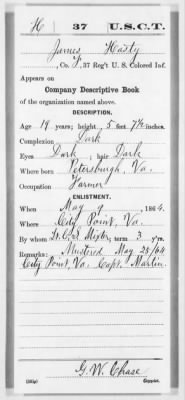 H 37 U.S.C.T.
James Hasty
, Co. F, 37 Reg't U. S. Colored Inf.
Appears on
Company Descriptive Book
of the organization named above.
DESCRIPTION.
Age 19 years; height 5 feet 7½ inches.
Complexion Dark
Eyes Dark ; hair Dark
Where born Petersburgh, Va.
Occupation Farmer
ENLISTMENT.
When May 9 , 1864.
Where City Point, Va.
By whom ; term 3 y'rs.
Remarks: Mustered May 25/64
City Point, Va. Capt. Martin.
G. W. Chase
Copyist.